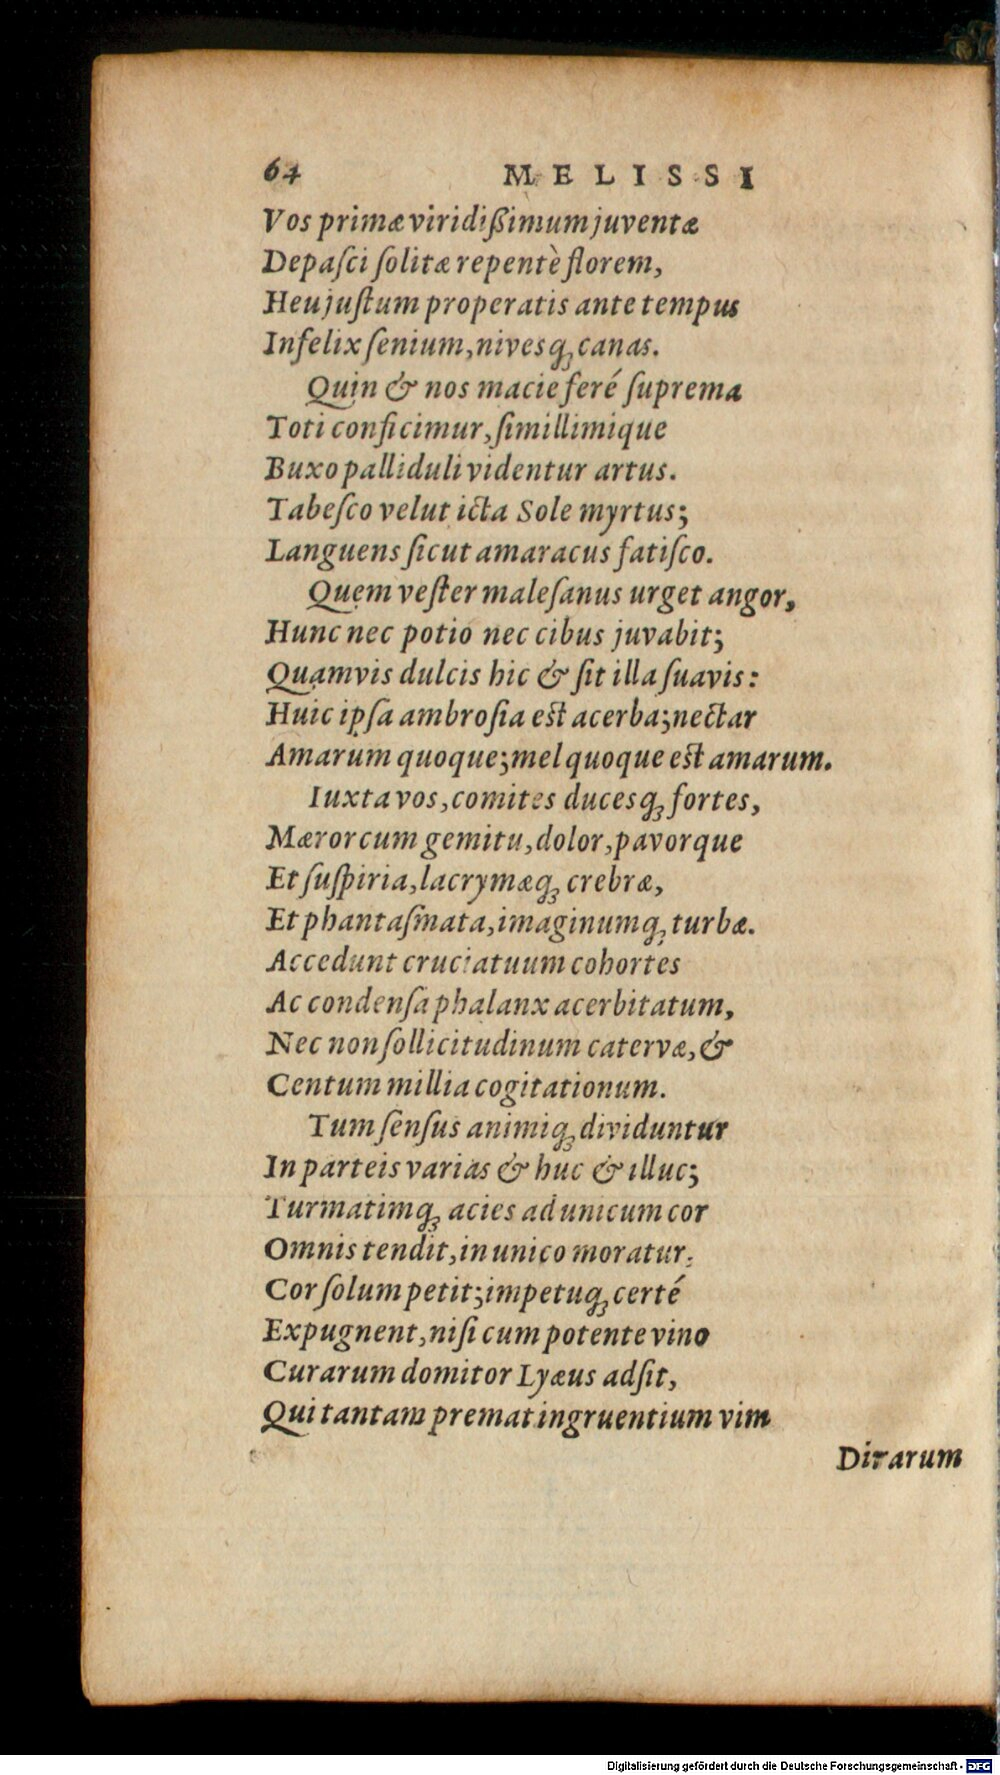 64 MELISSI
Vos primæ viridißimum juventæ
Depaſci ſolitæ repentè florem,
Heu juſtum properatis ante tempus
Infelix ſenium, nivesq́; canas.
Quin & nos macie feré ſuprema
Toti conficimur, ſimillimique
Buxo palliduli videntur artus.
Tabeſco velut icta Sole myrtus;
Languens ſicut amaracus fatiſco.
Quem veſter maleſanus urget angor,
Hunc nec potio nec cibus juvabit;
Quamvis dulcis hic & ſit illa ſuavis:
Huic ipſa ambroſia eſt acerba; nectar
Amarum quoque; mel quoque eſt amarum.
Iuxta vos, comites ducesq́; fortes,
Mæror cum gemitu, dolor, pavorque
Et ſuſpiria, lacrymæq́; crebræ,
Et phantaſmata, imaginumq́; turbæ.
Accedunt cruciatuum cohortes
Ac condenſa phalanx acerbitatum,
Nec non ſollicitudinum catervæ, &
Centum millia cogitationum.
Tum ſenſus animiq́; dividuntur
In parteis varias & huc & illuc;
Turmatimq́; acies ad unicum cor
Omnis tendit, in unico moratur;
Cor ſolum petit; impetuq́; certé
Expugnent, niſi cum potente vino
Curarum domitor Lyæus adſit,
Qui tantam premat ingruentium vim
Dirarum
Digitalisierung gefördert durch die Deutsche Forschungsgemeinschaft - DFG